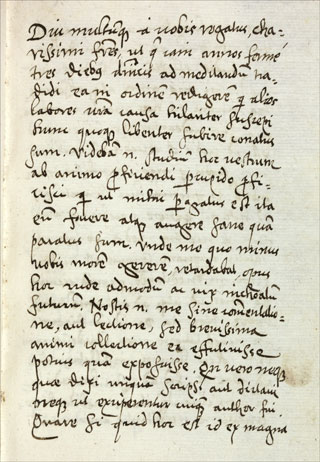 Diu multũq̃ à vobis rogatus, cha-
rissimi frẽs, ut q̃ iam annos fermé
tres diebꝰ dñicis ad meditandũ tra-
didi ea in ordinem redigerem q̃ alios
labores vr̃a causa hilariter suscepi
hunc quoq̨ libenter subire conatus
sum. Videbã n. studium hoc vestrum
ab animo ꝓficiendi ꝑcupido ꝓfi-
cisci q̃ ut mihi ꝑgratus est ita
eũ fovere atq̨ augere sane quã
paratus sum. Unde me quo minus
vobis morẽ gererẽ, retardabat, opus
hoc rude admodũ ac vix inchoatũ
futurũ. Nostis n. me sine comentatio-
ne, aut lectione, sed brevissima
animi collectione ea effutivisse
potius quã exposuisse. Qui vero neq̨
quae dixi unquã scripsi aut dictavi
neque ut exciperentur author fui
Quare si quid hoc est id ex magna